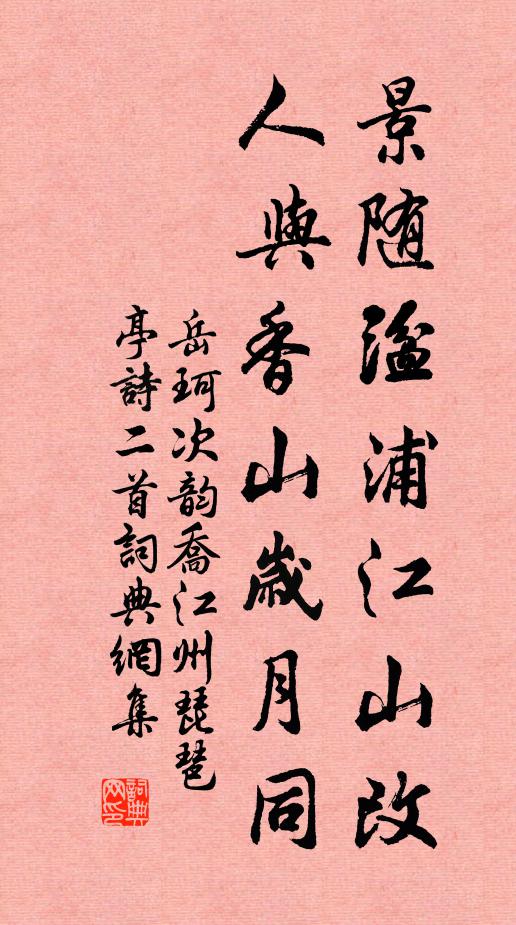 景随湓浦江山改
人與香山歲月同
岳珂次韵喬江州琵琶
亭詩二首詞典網集
詞典網印